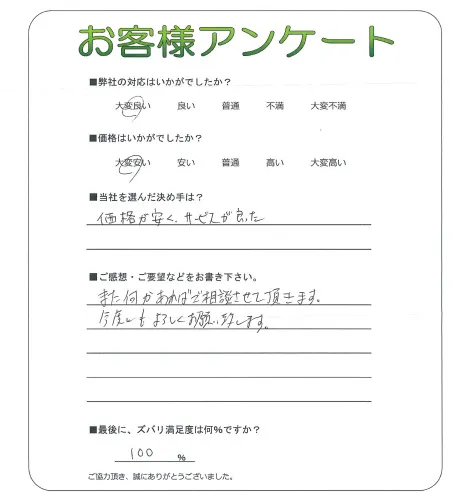 お客様アンケート
■弊社の対応はいかがでしたか？
大変良い 良い 普通 不満 大変不満
■価格はいかがでしたか？
大変安い 安い 普通 高い 大変高い
■当社を選んだ決め手は？
価格が安く、サービスが良った
■ご感想・ご要望などをお書き下さい。
また何かあればご相談させて頂きます。
今度ともよろしくお願い致します。
■最後に、ズバリ満足度は何％ですか？
100 ％
ご協力頂き、誠にありがとうございました。